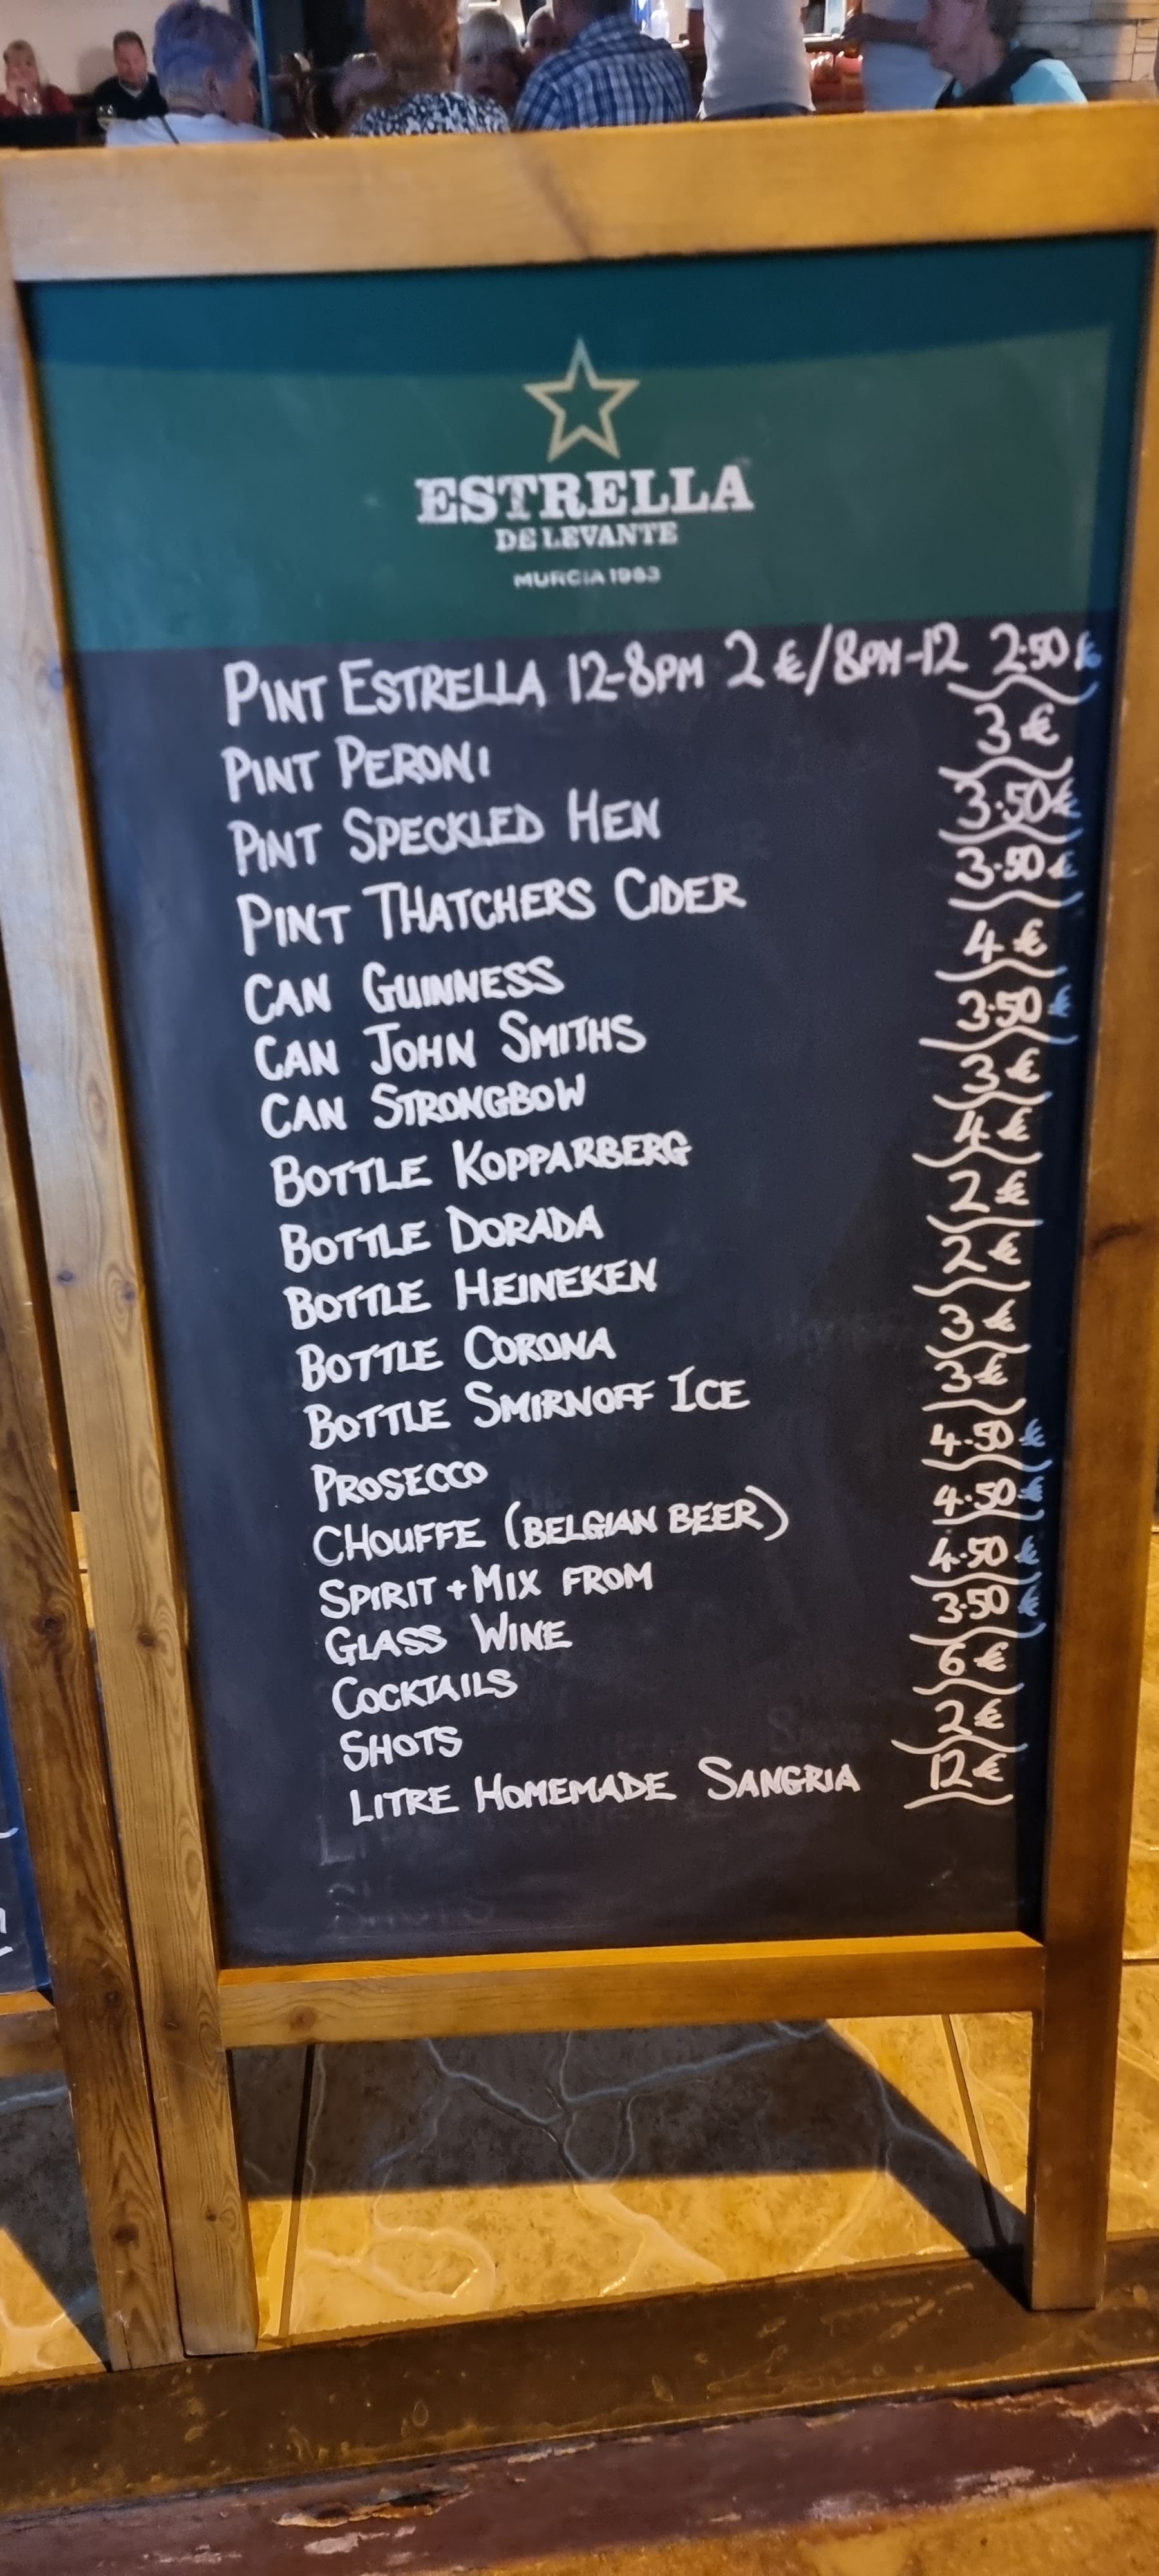 ESTRELLA
DE LEVANTE
MURCIA 1963
PINT ESTRELLA 12-8PM 2€/8PM-12 2.50€
PINT PERONI 3€
PINT SPECKLED HEN 3.50€
PINT THATCHERS CIDER 3.50€
CAN GUINNESS 4€
CAN JOHN SMITHS 3.50€
CAN STRONGBOW 3€
BOTTLE KOPPARBERG 4€
BOTTLE DORADA 2€
BOTTLE HEINEKEN 2€
BOTTLE CORONA 3€
BOTTLE SMIRNOFF ICE 3€
PROSECCO 4.50€
CHOUFFE (BELGIAN BEER) 4.50€
SPIRIT + MIX FROM 4.50€
GLASS WINE 3.50€
COCKTAILS 6€
SHOTS 2€
LITRE HOMEMADE SANGRIA 12€